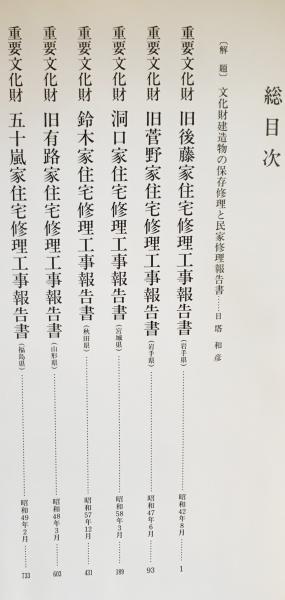 総目次
〔解題〕文化財建造物の保存修理と民家修理報告書……日塔和彦
重要文化財 旧後藤家住宅修理工事報告書(岩手県)……昭和42年8月……1
重要文化財 旧菅野家住宅修理工事報告書(岩手県)……昭和47年6月……93
重要文化財 洞口家住宅修理工事報告書(宮城県)……昭和58年3月……189
重要文化財 鈴木家住宅修理工事報告書(秋田県)……昭和57年12月……431
重要文化財 旧有路家住宅修理工事報告書(山形県)……昭和48年3月……603
重要文化財 五十嵐家住宅修理工事報告書(福島県)……昭和49年2月……733